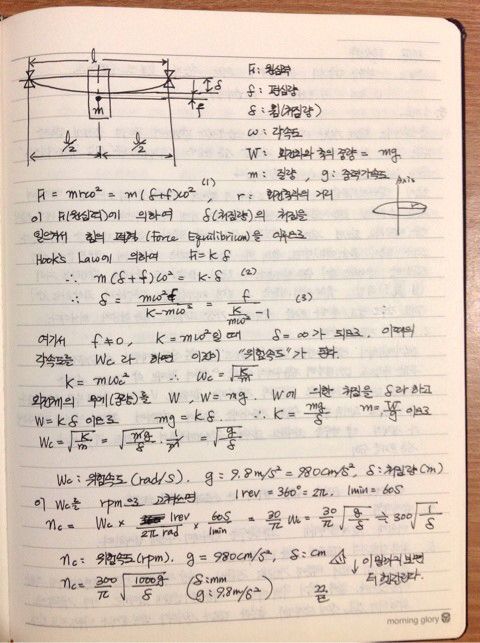 l
δ
f
m
l/2 l/2
F: 원심력
f: 편심량
δ: 휨(처짐량)
ω: 각속도
W: 회전체와 축의 중량 = mg
m: 질량, g: 중력가속도
F = mrω² = m(δ+f)ω² (1), r: 회전축과의 거리
axis
r
이 F(원심력)에 의하여 δ(처짐량)의 처짐을
일으켜서 힘의 평형(Force Equilibrium)을 이루므로
Hook's Law에 의하여 F = kδ
∴ m(δ+f)ω² = k·δ (2)
∴ δ = mω²f / (k-mω²) = f / (k/mω² - 1) (3)
여기서 f≠0, k = mω²일 때 δ = ∞가 되므로, 이때의
각속도를 ωc라 하면 이것이 "위험속도"가 된다.
k = mωc² ∴ ωc = √(k/m)
회전체의 무게(중량)를 W, W = mg. W에 의한 처짐을 δ라 하고
W = kδ 이므로 mg = kδ. ∴ k = mg/δ m = W/g 이므로
ωc = √(k/m) = √(mg/δ · 1/m) = √(g/δ)
ωc: 위험속도 (rad/s). g = 9.8m/s² = 980cm/s² δ: 처짐량(m)
이 ωc를 rpm으로 고쳐쓰면 1rev = 360° = 2π. 1min = 60s
nc = ωc × 1rev/2π rad × 60s/1min = 30/π ωc = 30/π √(g/δ) ≒ 300√(1/δ)
nc: 위험속도(rpm). g = 980cm/s², δ: cm
↓ 이 밑까지 보면 더 헷갈린다.
nc = 300/π √(1000g/δ) (δ: mm
g: 9.8m/s²)
morning glory